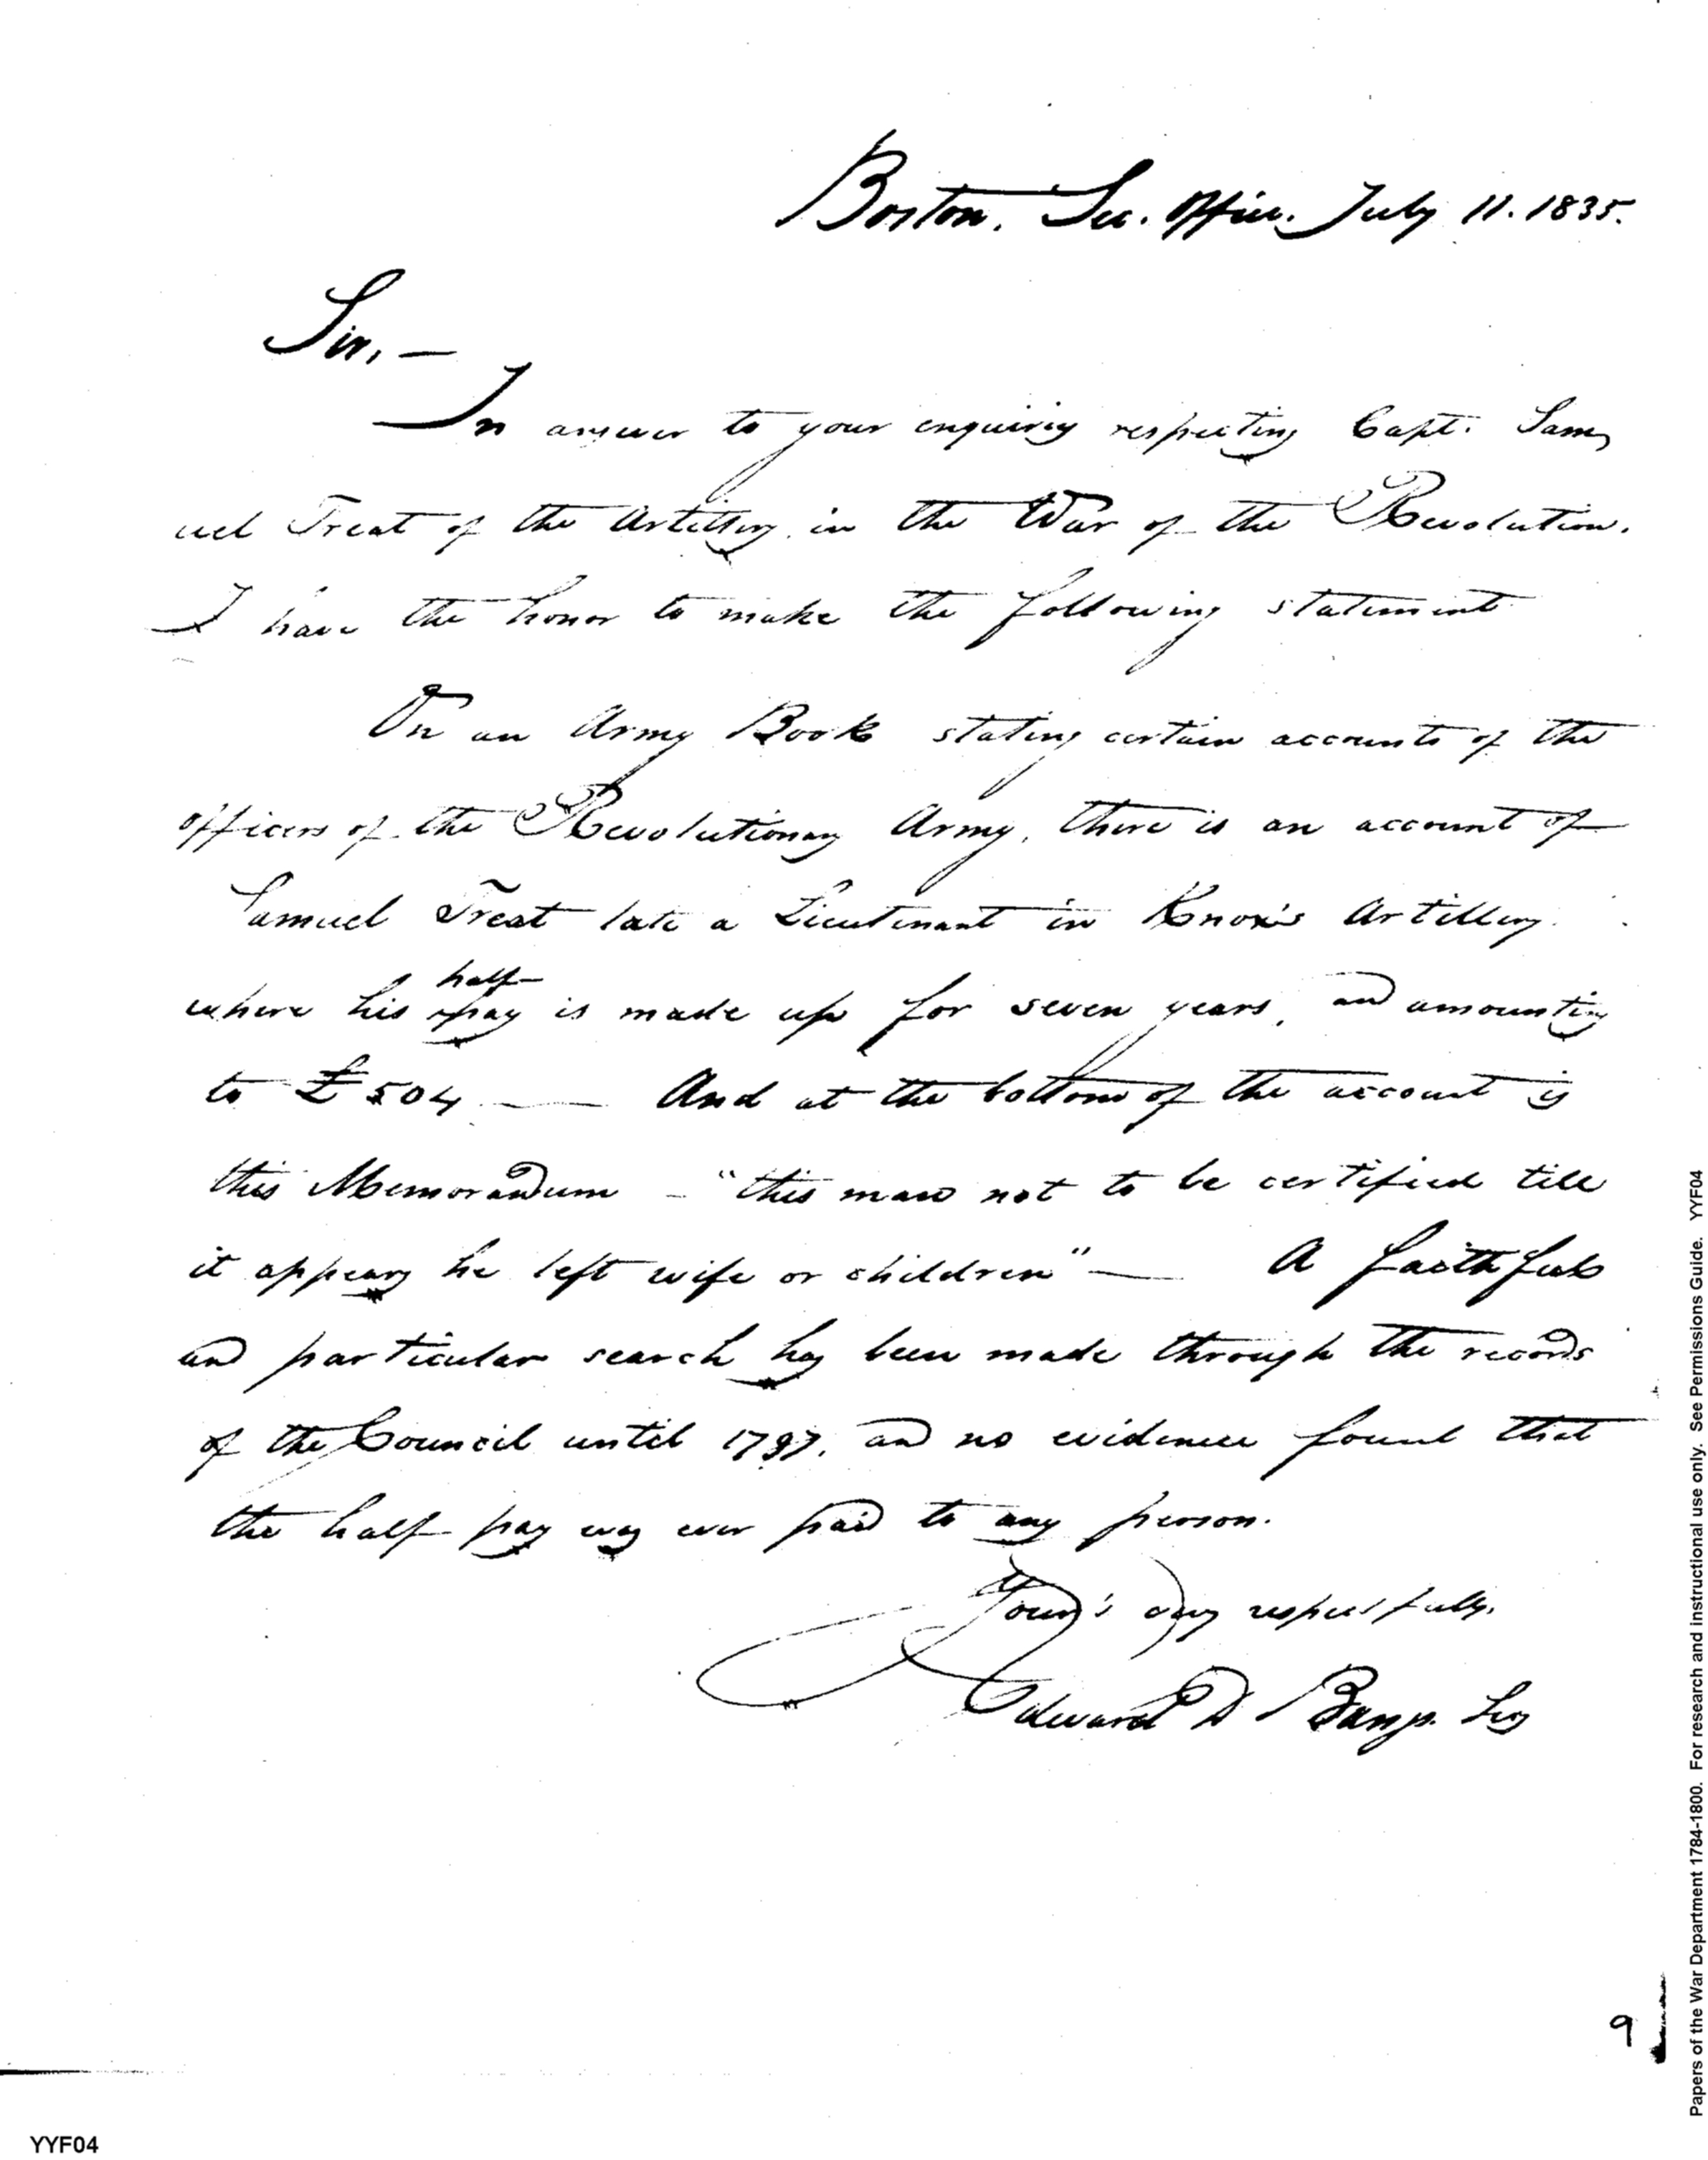 Boston. Sec. Office. July 11. 1835.
Sir, —
In answer to your enquiries respecting Capt. Sam,
uel Treat of the Artillery in the War of the Revolution.
I have the honor to make the following statement
On an Army Book stating certain accounts of the
officers of the Revolutionary Army, there is an account of
Samuel Treat late a Lieutenant in Knox's Artillery.
half
where his pay is made up for seven years, and amounting
to £504 — And at the bottom of the account is
this Memorandum – "this man not to be certified till
it appears he left wife or children" — A faithful
and particular search has been made through the records
of the Council until 1797, and no evidence found that
the half pay was ever paid to any person.
Your's very respectfully,
Edward D Bangs. Secy
9
YYF04
Papers of the War Department 1784-1800. For research and instructional use only. See Permissions Guide. YYF04